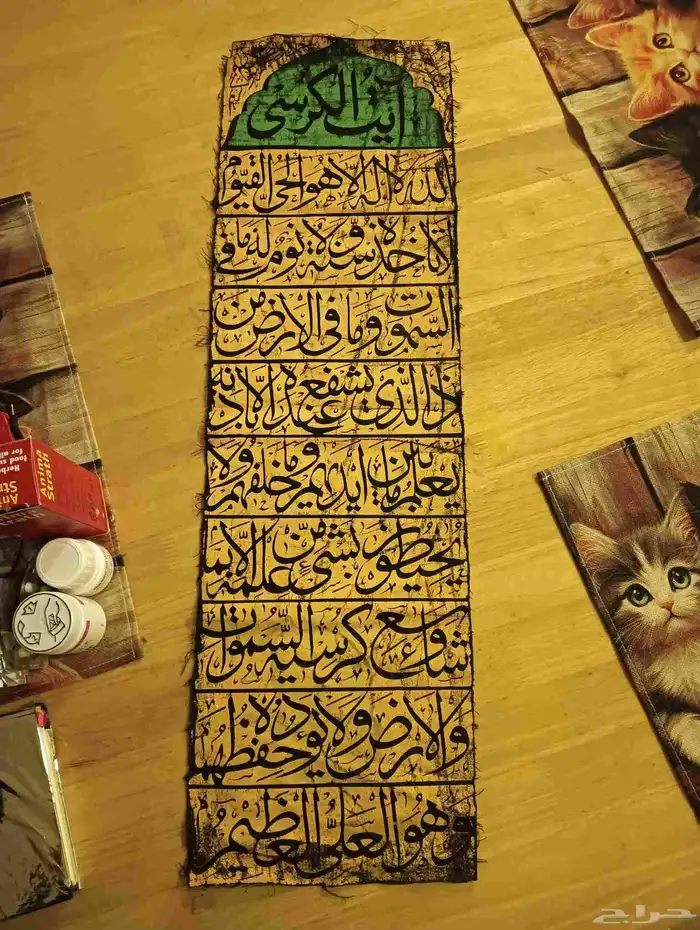 آيت الكرسي
الله لا إله إلا هو الحي القيوم
لا تأخذه سنة ولا نوم له ما في
السموت وما في الارض من
ذا الذي يشفع عنده إلا باذنه
يعلم ما بين ايديهم وما خلفهم ولا
يحيطون بشيء من علمه الا بما
شاء وسع كرسيه السموات
والارض ولا يؤده حفظهما
وهو العلي العظيم
Anima
Strath
Herbal
food su
for all
حراج